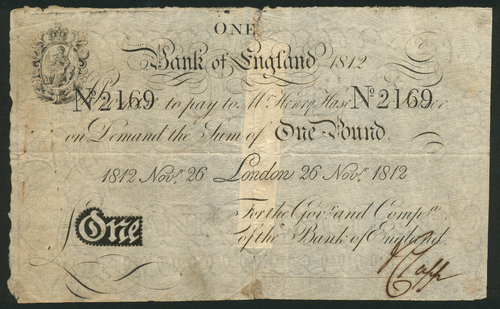 ONE
Bank of England 1812
No 2169 to pay to Mr Henry Hase No 2169
on Demand the Sum of One Pound
1812 Novr 26 London 26 Novr 1812
One
For the Govr and Compa
of the Bank of England